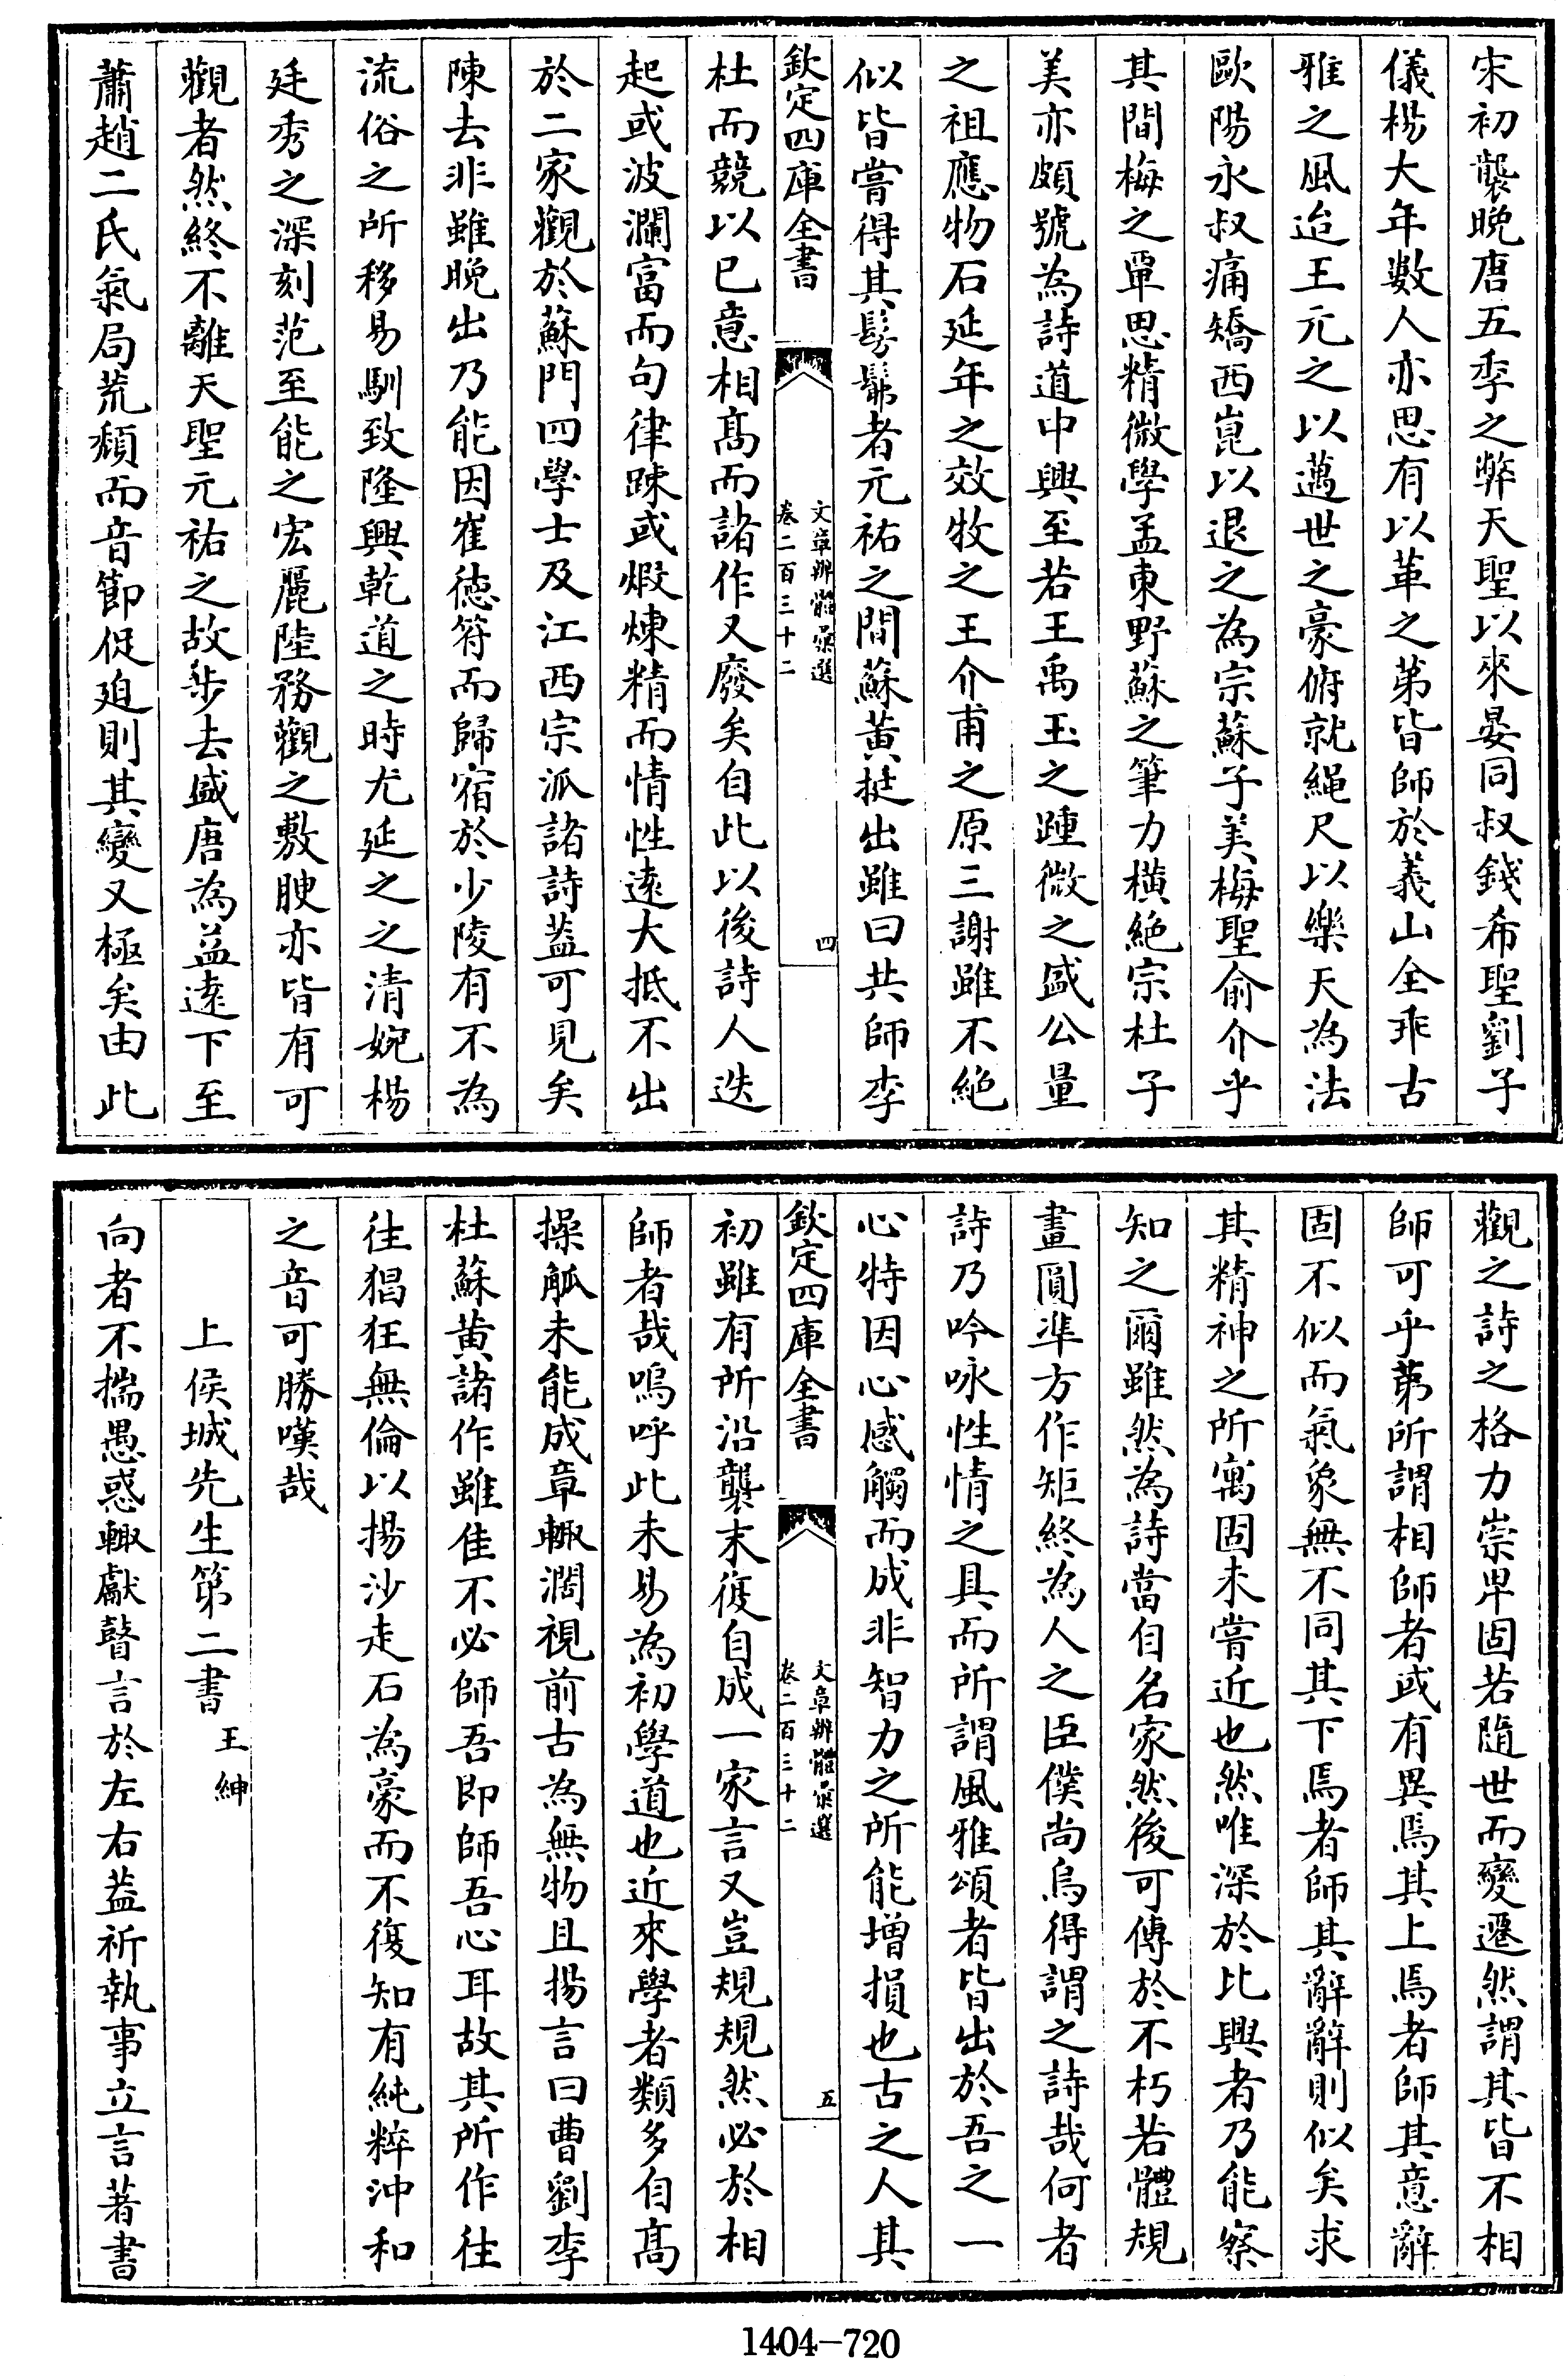 宋初襲晚唐五季之弊天聖以來晏同叔錢希聖劉子
儀楊大年數人亦思有以革之第皆師於義山全乖古
雅之風迨王元之以邁世之豪俯就繩尺以樂天為法
歐陽永叔痛矯西崑以退之為宗蘇子美梅聖俞介乎
其間梅之覃思精微學孟東野蘇之筆力橫絶宗杜子
美亦頗號為詩道中興至若王禹玉之踵微之盛公量
之祖應物石延年之效牧之王介甫之原三謝雖不絶
似皆嘗得其髣髴者元祐之間蘇黃挺出雖曰共師李
欽定四庫全書
文章辨體彚選
卷二百三十二
四
杜而競以已意相髙而諸作又廢矣自此以後詩人迭
起或波瀾富而句律踈或煅煉精而情性逺大抵不出
於二家觀於蘇門四學士及江西宗派諸詩葢可見矣
陳去非雖晚出乃能因崔徳符而歸宿於少陵有不為
流俗之所移易馴致隆興乾道之時尤延之之清婉楊
廷秀之深刻范至能之宏麗陸務觀之敷腴亦皆有可
觀者然終不離天聖元祐之故步去盛唐為益逺下至
蕭趙二氏氣局荒頹而音節促廹則其變又極矣由此
觀之詩之格力崇卑固若隨世而變遷然謂其皆不相
師可乎第所謂相師者或有異焉其上焉者師其意辭
固不似而氣象無不同其下焉者師其辭辭則似矣求
其精神之所寓固未嘗近也然唯深於比興者乃能察
知之爾雖然為詩當自名家然後可傳於不朽若體規
畫圓準方作矩終為人之臣僕尚烏得謂之詩哉何者
詩乃吟咏性情之具而所謂風雅頌者皆出於吾之一
心特因心感觸而成非智力之所能增損也古之人其
欽定四庫全書
文章辨體彚選
卷二百三十二
五
初雖有所沿襲末復自成一家言又豈規規然必於相
師者哉嗚呼此未易為初學道也近來學者類多自髙
操觚未能成章輙濶視前古為無物且揚言曰曹劉李
杜蘇黃諸作雖佳不必師吾即師吾心耳故其所作往
往猖狂無倫以揚沙走石為豪而不復知有純粹沖和
之音可勝嘆哉
上侯城先生第二書 王紳
向者不揣愚惑輙獻瞽言於左右葢祈執事立言著書
1404-720